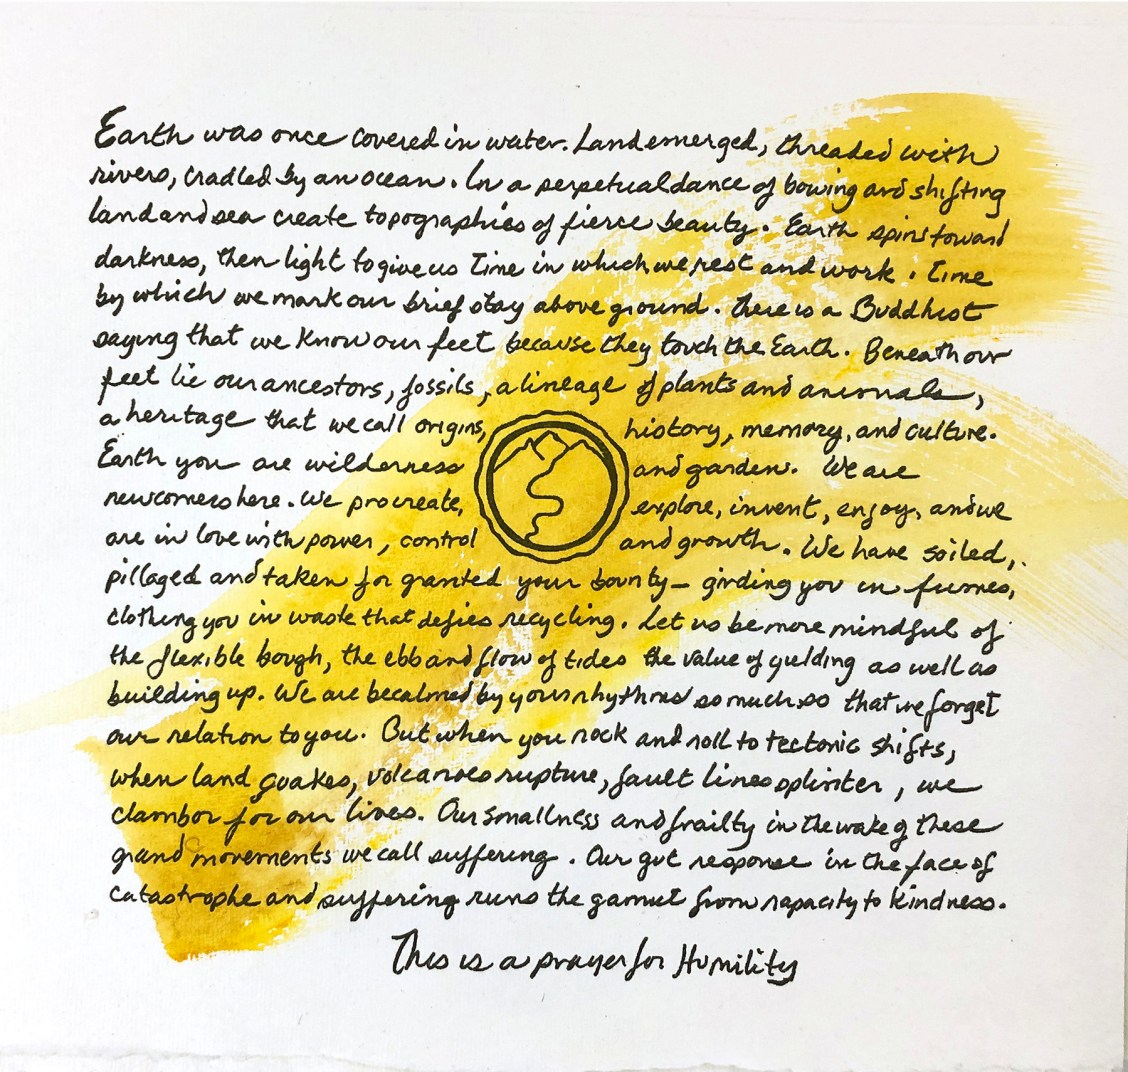 Earth was once covered in water. Land emerged, threaded with
rivers, cradled by an ocean. In a perpetual dance of bowing and shifting
land and sea create topographies of fierce beauty. Earth spins toward
darkness, then light to give us Time in which we rest and work. Time
by which we mark our brief stay above ground. There is a Buddhist
saying that we know our feet because they touch the Earth. Beneath our
feet lie our ancestors, fossils, a lineage of plants and animals,
a heritage that we call origins, history, memory, and culture.
Earth you are wilderness and garden. We are
newcomers here. We procreate, explore, invent, enjoy, and we
are in love with power, control and growth. We have soiled,
pillaged and taken for granted your bounty – girding you in fumes,
clothing you in waste that defies recycling. Let us be more mindful of
the flexible bough, the ebb and flow of tides the value of yielding as well as
building up. We are becalmed by your rhythms so much so that we forget
our relation to you. But when you rock and roll to tectonic shifts,
when land quakes, volcanoes rupture, fault lines splinter, we
clambor for our lives. Our smallness and frailty in the wake of these
grand movements we call suffering. Our gut response in the face of
catastrophe and suffering runs the gamut from rapacity to kindness.
This is a prayer for Humility